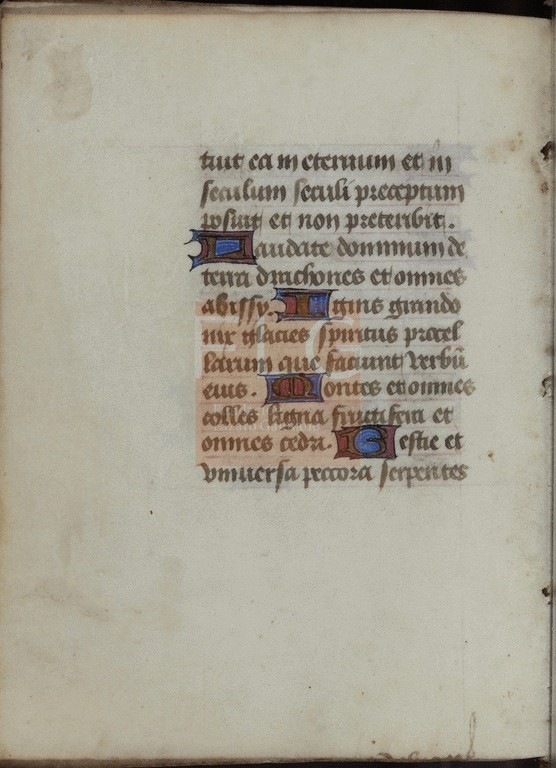 tuit ea in eternum et in
seculum seculi preceptum
posuit et non preteribit.
Laudate dominum de
terra drachones et omnes
abissy. Ignis grando
nix glacies spiritus procel
larum que faciunt verbū
eius. Montes et omnes
colles ligna fructifera et
omnes cedri. Bestie et
vniuersa peccora serpentes